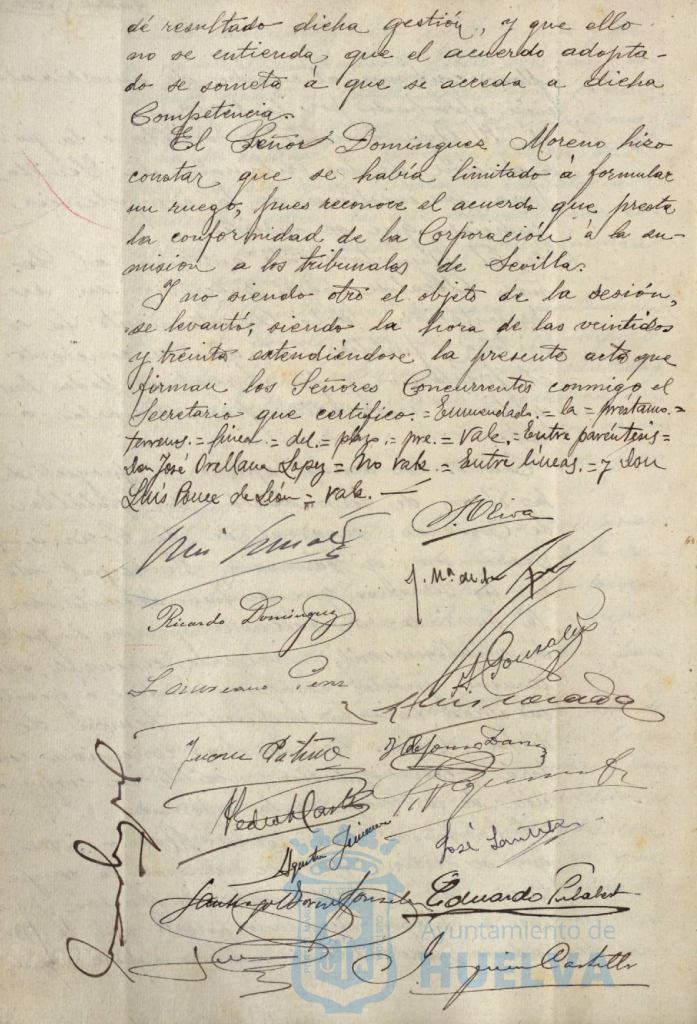 dé resultado dicha gestión, y que ello
no se entienda que el acuerdo adopta-
do se someta á que se acceda a dicha
Competencia.
El Señor Dominguez Moreno hizo
constar que se había limitado á formular
un ruego, pues reconoce el acuerdo que presta
la conformidad de la Corporación á la su-
mision a los tribunales de Sevilla.
Y no siendo otro el objeto de la sesión,
se levantó, siendo la hora de las veintidos
y treinta extendiéndose la presente acta que
firman los Señores Concurrentes conmigo el
Secretario que certifico.=Enmendado.=la=prestamo.=
terrenos.=finca.=del.=plazo.=pre.=Vale.=Entre paréntesis=
Don José Orellana Lopez=No vale.=Entre líneas.=y Don
Luis Ponce de León=vale.—
J. Oliva
J. Mª. de la
Ricardo Dominguez
González
Luis
Juan Patiño
Ildefonso
Pedro
Agustin Jimenez
José
Santiago González
Eduardo
Castillo
Ayuntamiento de
HUELVA